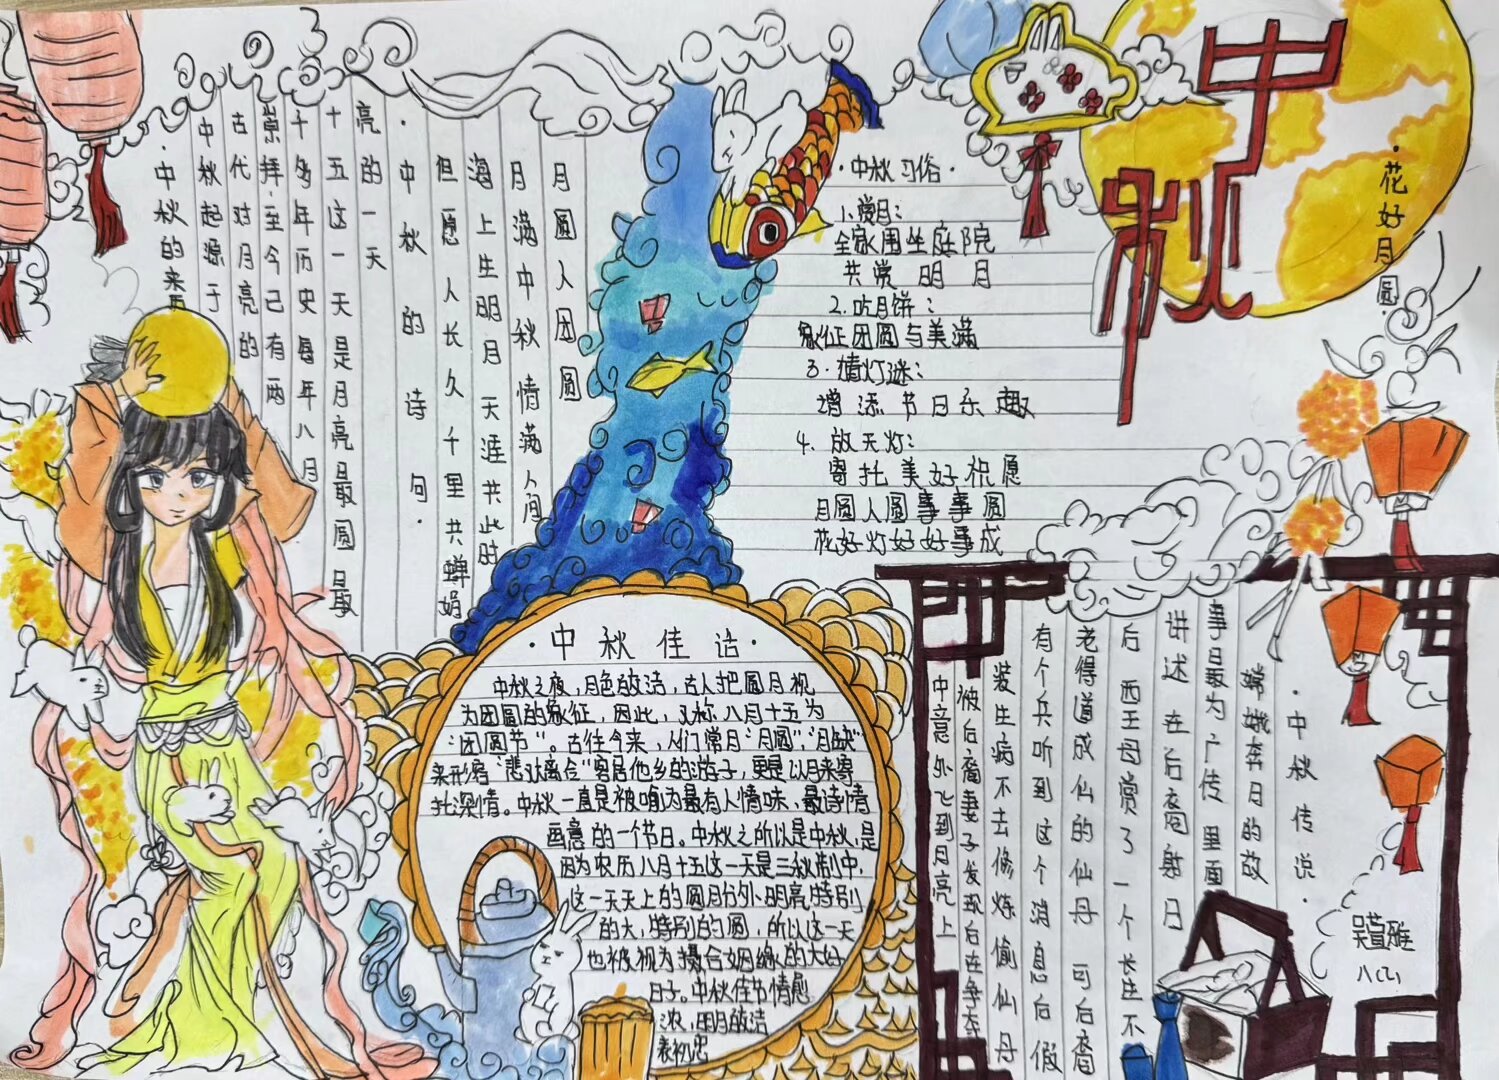 中秋
·花好月圆·
·中秋的来历
中秋起源于
古代对月亮的
崇拜·至今已有两
千多年历史每年八月
十五这一天是月亮最圆最
亮的一天
·中秋的诗句·
但愿人长久千里共蝉娟
海上生明月天涯共此时
月满中秋情满人间
月圆人团圆
·中秋习俗·
1.赏月:
全家围坐庭院
共赏明月
2.吃月饼:
象征团圆与美满
3.猜灯谜:
增添节日乐趣
4.放天灯:
寄托美好祝愿
月圆人圆事事圆
花好灯好好事成
·中秋佳话·
中秋之夜,月色皎洁,古人把圆月视
为团圆的象征,因此,又称八月十五为
"团圆节"。古往今来,人们常月"月圆","月缺"
来形容"悲欢离合"客居他乡的游子,更是以月来寄
托深情。中秋一直是被喻为最有人情味、最诗情
画意的一个节日。中秋之所以是中秋,是
因为农历八月十五这一天是三秋制中,
这一天天上的圆月分外明亮特别
的大,特别的圆,所以这一天
也被视为撮合姻缘的大好
日子。中秋佳节情愈
浓,明月皎洁
表祝
·中秋传说·
嫦娥奔月的故
事最为广传 里面
讲述在后裔射日
后 西王母赏了一个长生不
老得道成仙的仙丹 可后裔
有个兵听到这个消息后假
装生病不去修炼偷仙丹
被后裔妻子发现后在争夺
中意外飞到月亮上
八(2)